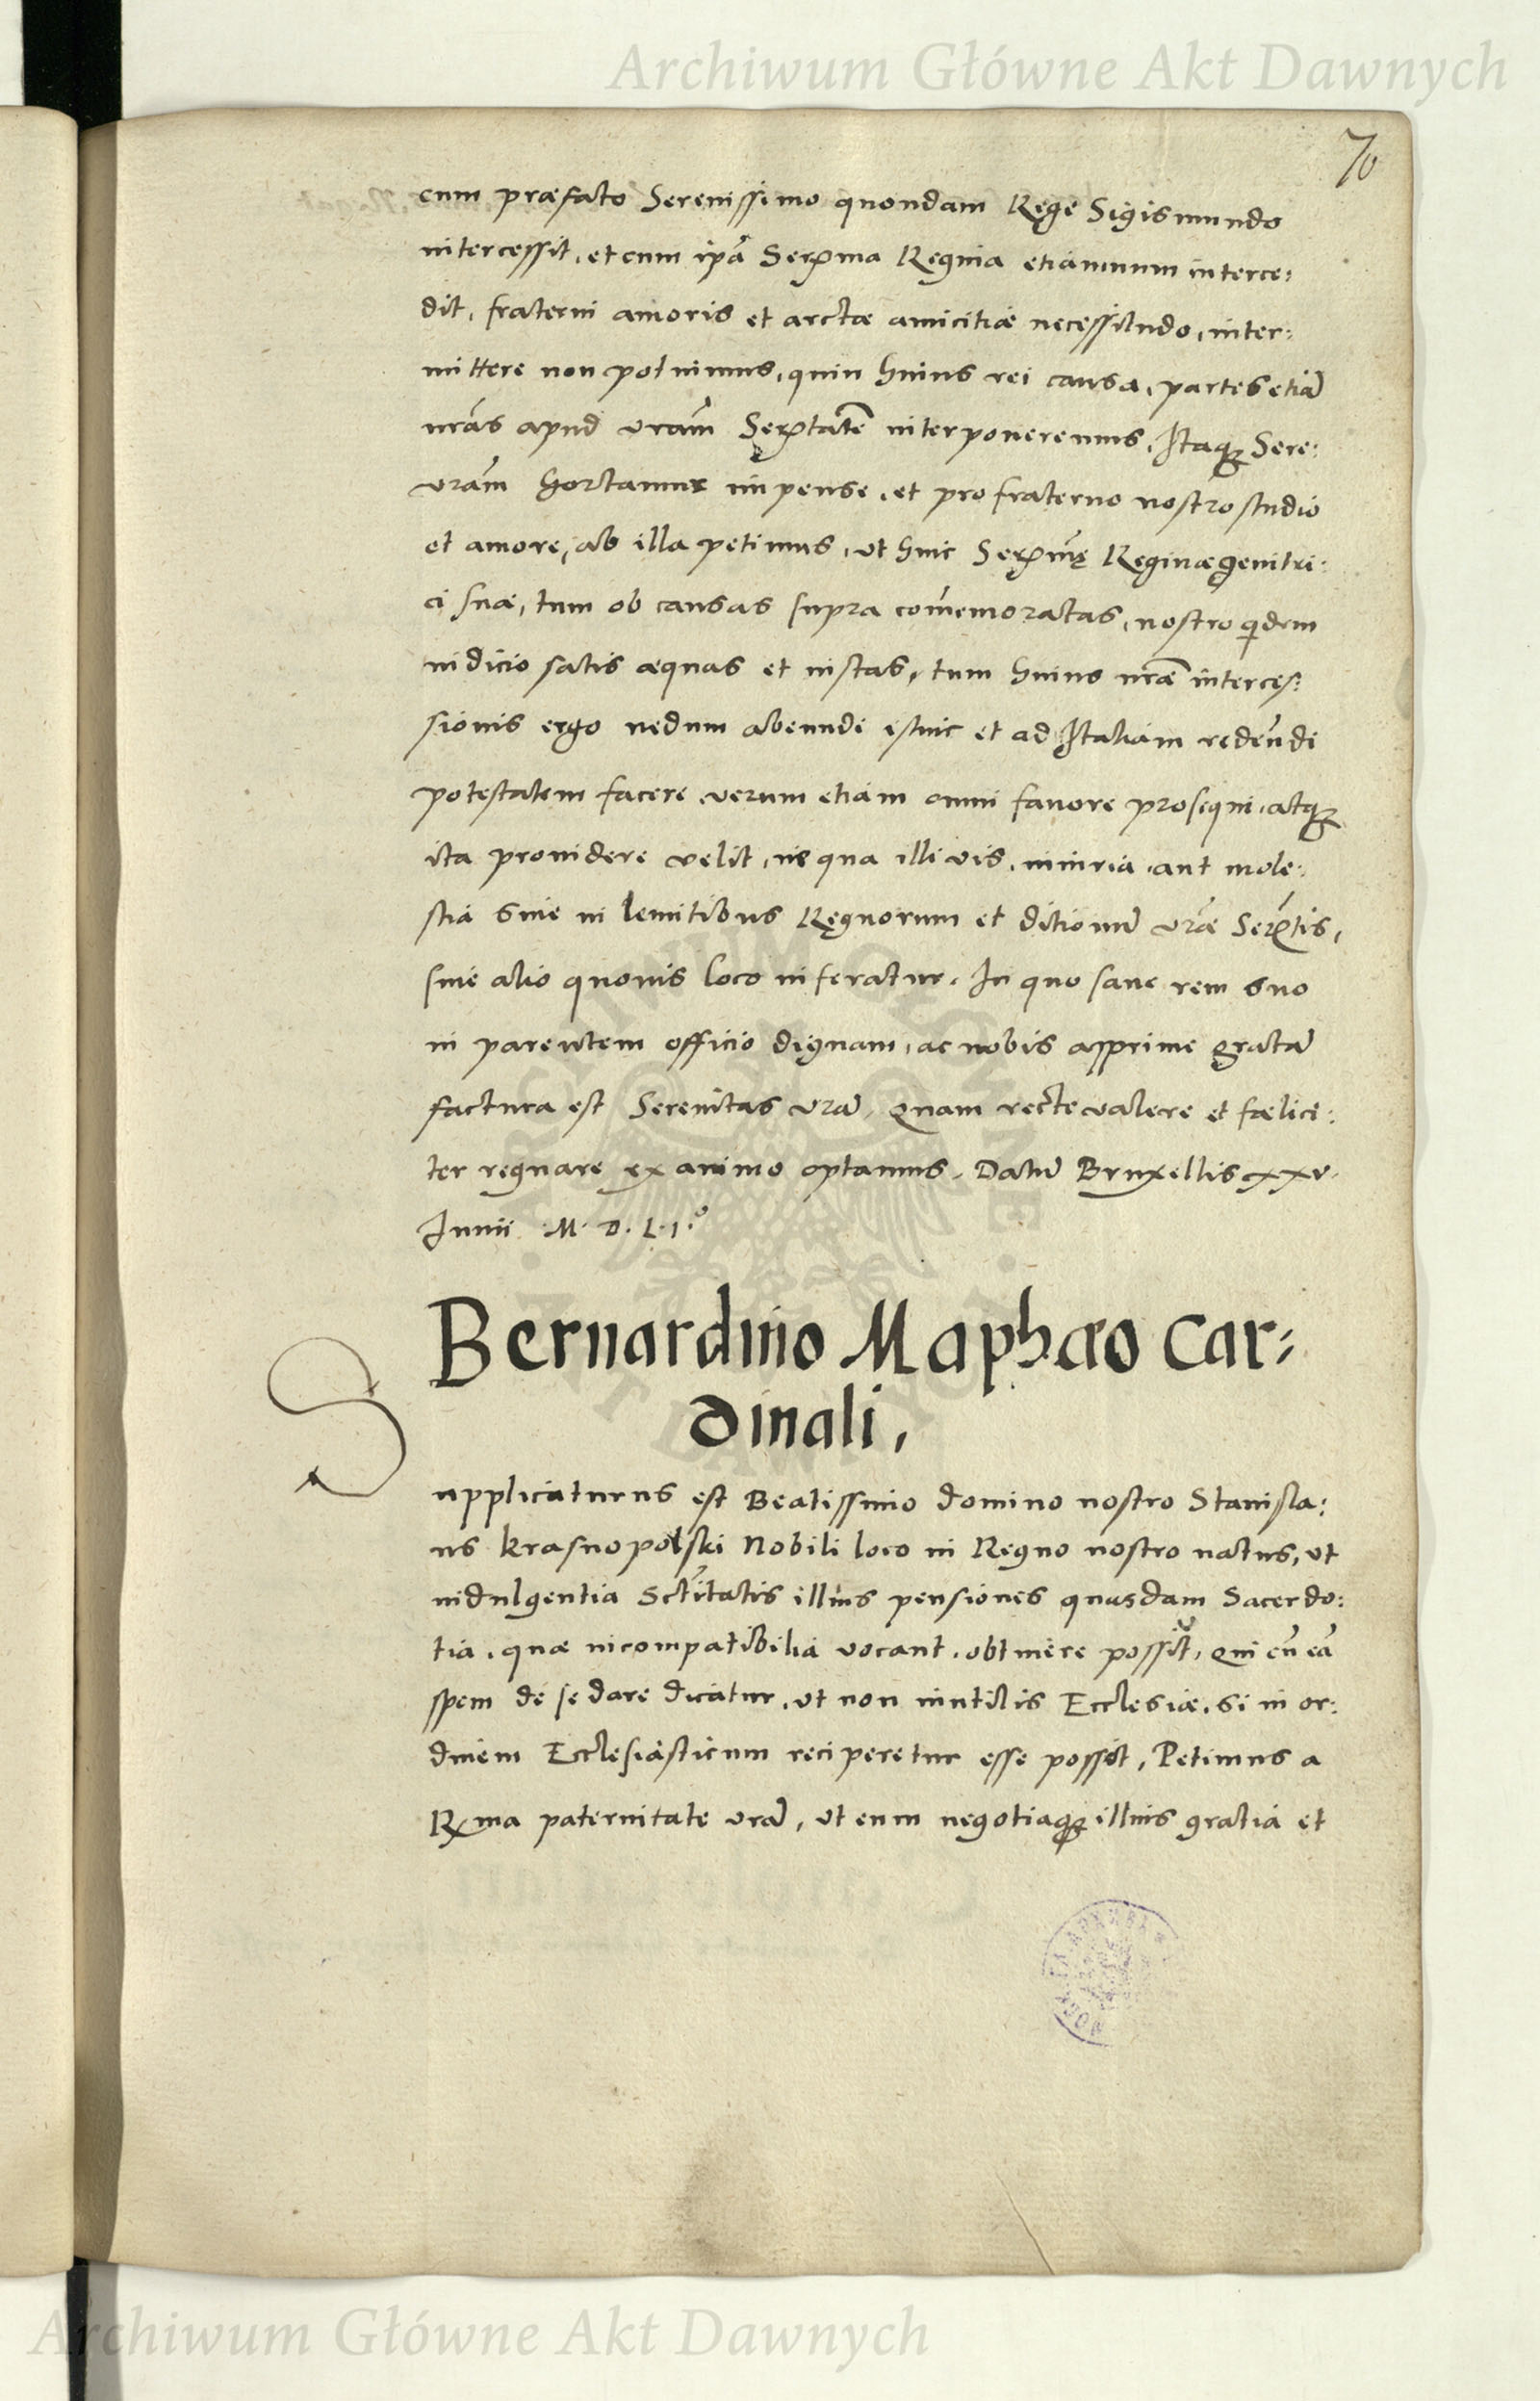 Archiwum Główne Akt Dawnych
70
cum præfato Serenissimo quondam Rege Sigismundo
intercessit, et cum ipā Serma Regina etiamnum interce:
dit, fraterni amoris et arctæ amicitiæ necessitudo, inter:
mittere non potuimus, quin huius rei causa, partes etiā
nrās apud vrām Sertatē interponeremus, Itaq₃ Sere:
vrām hortamur impense, et pro fraterno nostro studio
et amore, ab illa petimus, ut huic Sermę Reginæ genitri:
ci suæ, tum ob causas supra com̄emoratas, nostro qidem
iudicio satis æquas et iustas, tum huius nræ interces:
sionis ergo nedum abeundi istuic et ad Italiam redeūdi
potestatem facere, verum etiam omni favore prosequi, atq₃
ita prouidere velit, ne qua illi vis, iniuria, aut mole:
stia siue in lemitibus Regnorum et ditionū vræ Sertis,
siue alio quouis loco inferatur. In quo sane rem suo
in parentem officio dignam, ac nobis apprime gratā
factura est Serenitas vrā, Quam recte valere et fælici:
ter regnare ex animo optamus. Datū Bruxellis xxv.
Iunii .M.D.L.I.º
Bernardino Maphæo Car=
dinali,
Supplicaturus est Beatissimo domino nostro Stanisla:
us Krasnopolski Nobili loco in Regno nostro natus, ut
indulgentia Sctītatis illius pensiones quasdam Sacerdo:
tia, quæ incompatibilia vocant, obtinere possit, Qui cū eā
spem de se dare dicatur, ut non inutilis Ecclesiæ, si in or:
dinem Ecclesiasticum reciperetur esse possit, Petimus a
Rma paternitate vrā, ut eum negotiaq₃ illius gratia et
Archiwum Główne Akt Dawnych